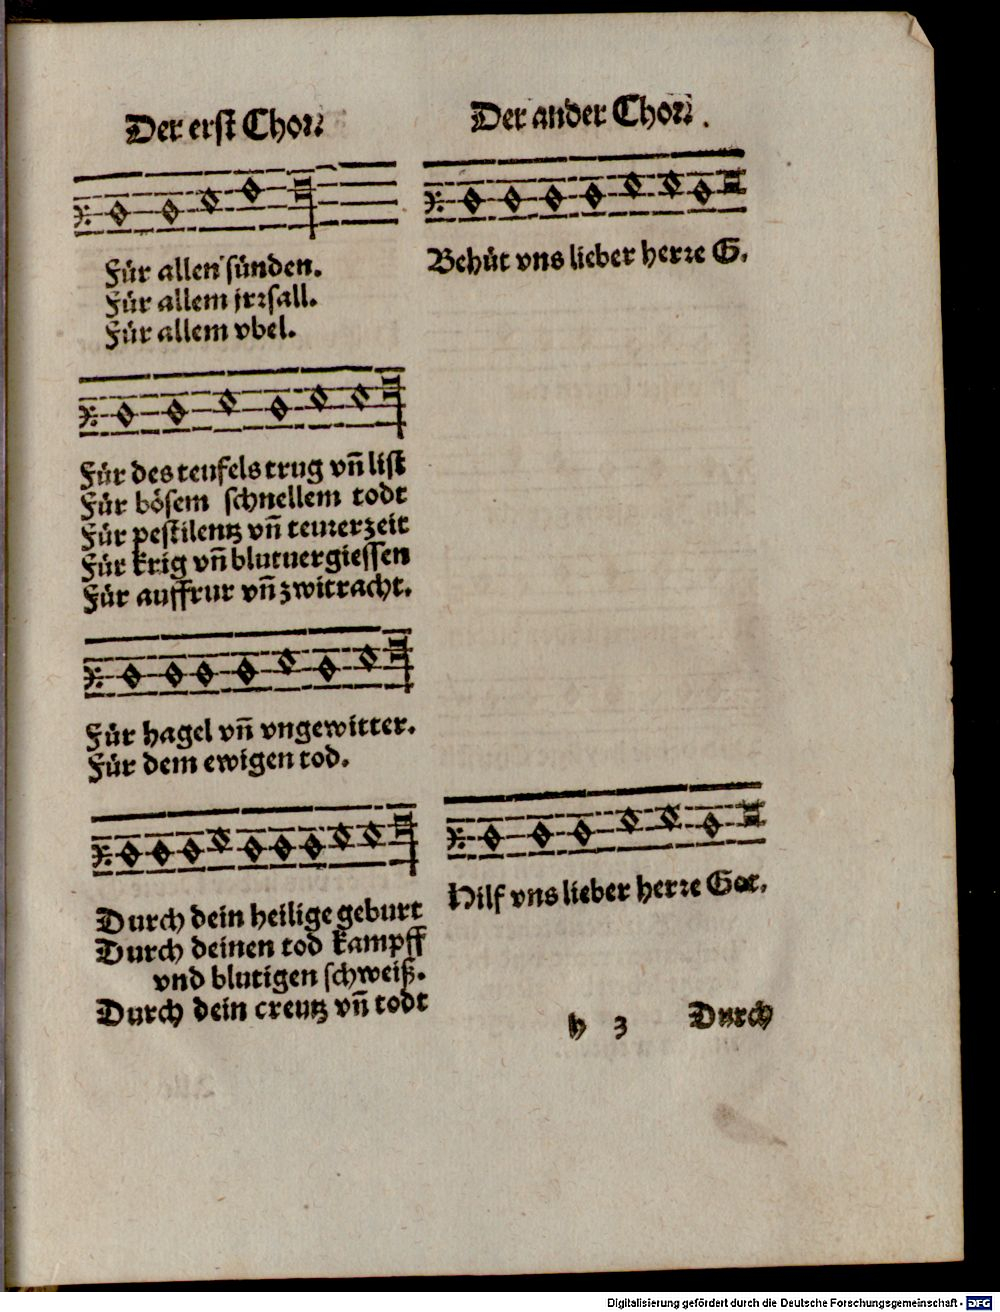 Der erst Chor.
Für allen sünden.
Für allem jrrsall.
Für allem vbel.
Für des teufels trug vn̄ list
Für bösem schnellem todt
Für pestilentz vn̄ teurer zeit
Für krig vn̄ blutuergiessen
Für auffrur vn̄ zwitracht.
Für hagel vn̄ vngewitter.
Für dem ewigen tod.
Durch dein heilige geburt
Durch deinen tod kampff
vnd blutigen schweiß.
Durch dein creutz vn̄ todt
Der ander Chor.
Behüt vns lieber herre G.
Hilf vns lieber herre Got.
h 3 Durch
Digitalisierung gefördert durch die Deutsche Forschungsgemeinschaft - DFG